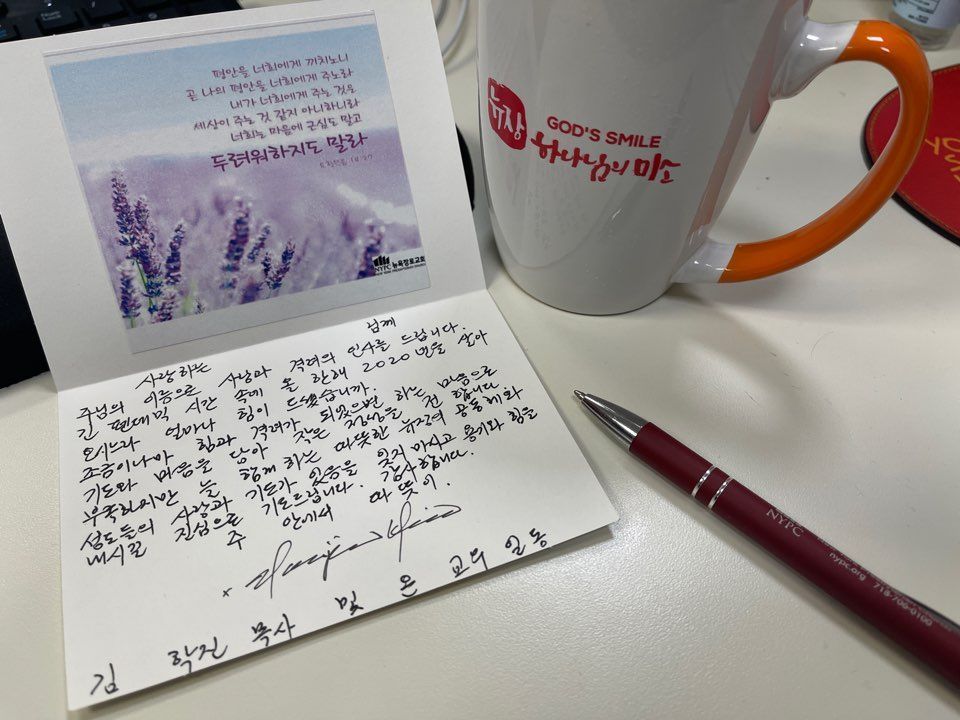 평안을 너희에게 끼치노니
곧 나의 평안을 너희에게 주노라
내가 너희에게 주는 것은
세상이 주는 것 같지 아니하니라
너희는 마음에 근심도 말고
두려워하지도 말라
14:27
NYPC 뉴욕장로교회
사랑하는 님께
주님의 이름으로 사랑과 격려의 인사를 드립니다.
긴 팬데믹 시간 속에 올 한해 2020년을 살아
오시느라 얼마나 힘이 드셨습니까.
조금이나마 힘과 격려가 되었으면 하는 마음으로
기도와 마음을 담아 작은 정성을 전합니다
부족하지만 늘 함께 하는 따뜻한 뉴장의 공동체와
성도들의 사랑과 기도가 있음을 잊지 마시고 용기와 힘을
내시길 진심으로 기도드립니다. 감사합니다.
주 안에서 따뜻이.
김 학진 목사 및 온 교우 일동
뉴장
GOD'S SMILE
하나님의 미소
NYPC
nypc.org 718-700-0100